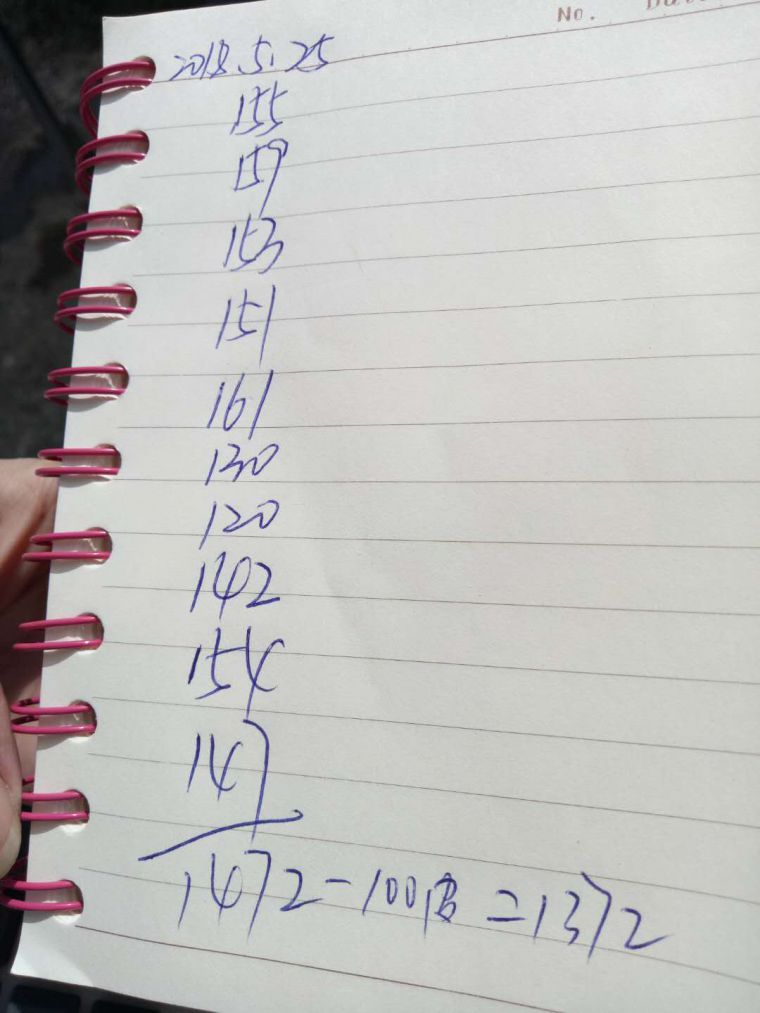 No.
2018.5.25
155
159
153
151
161
130
120
142
154
147
1472-100皮=1372